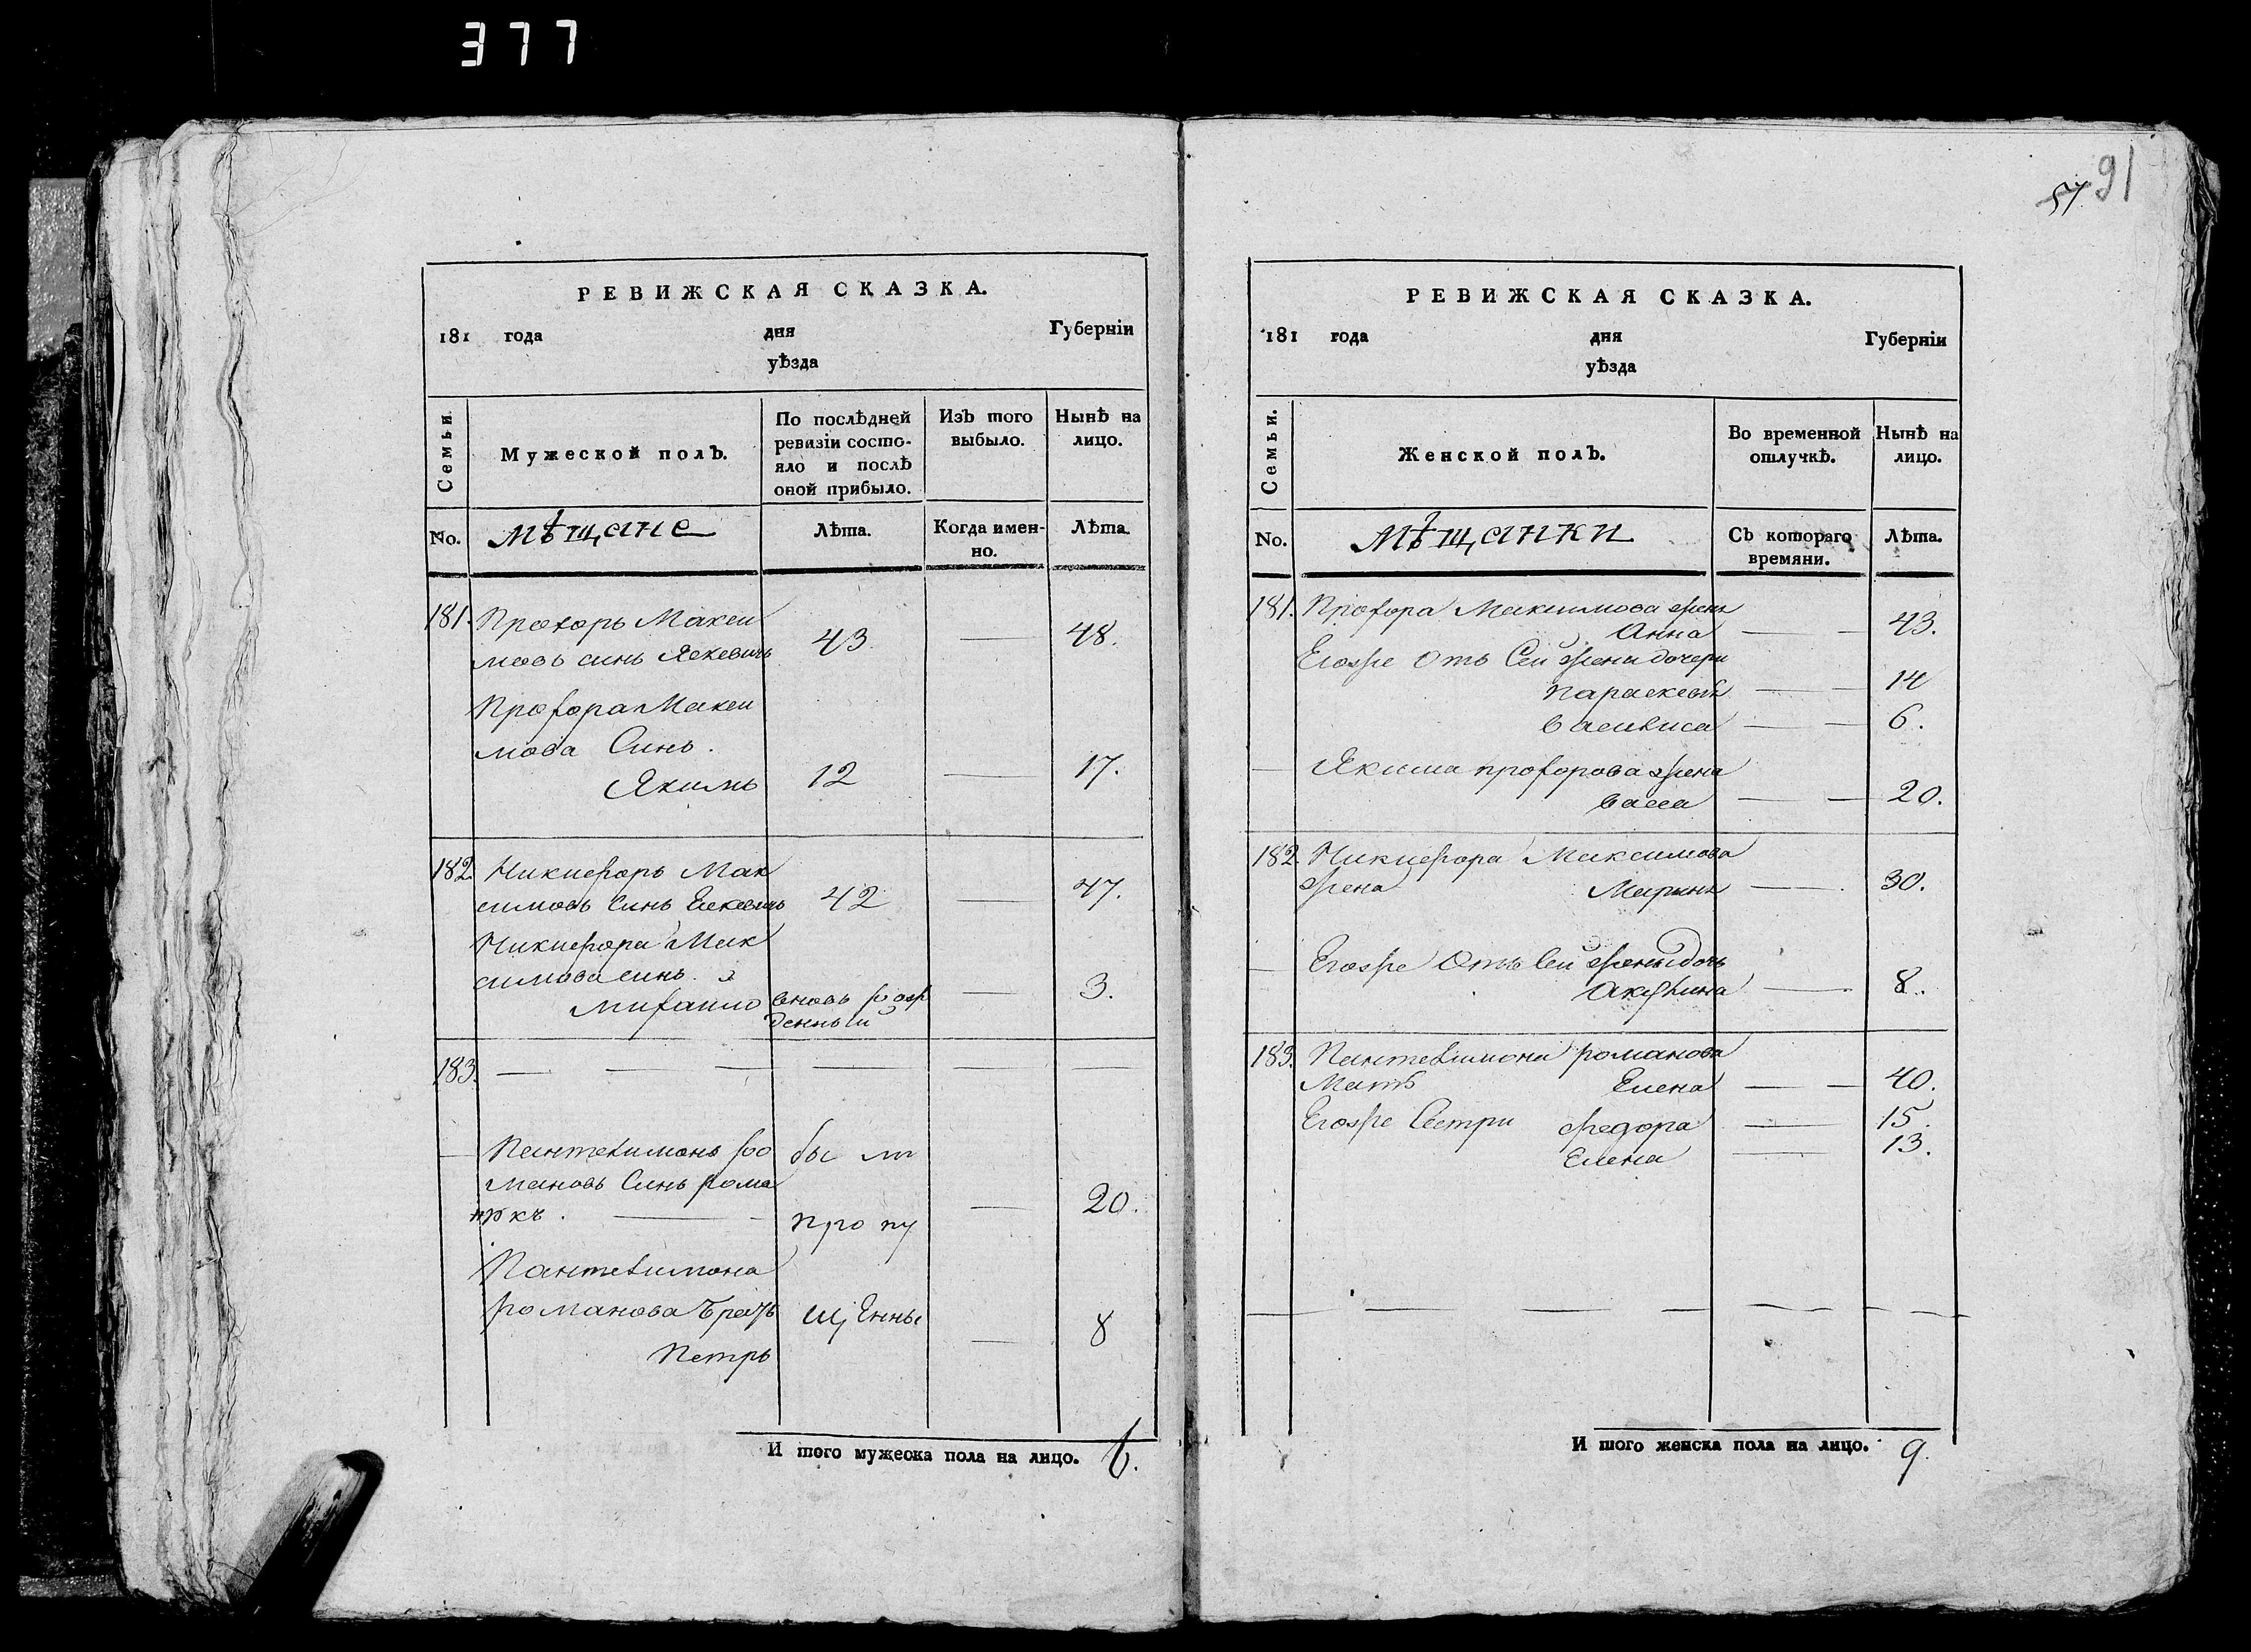 377
РЕВИЖСКАЯ СКАЗКА.
181 года дня Губерніи
уѣзда
Семьи
Мужеской полъ.
По послѣдней
ревизіи состо-
яло и послѣ
оной прибыло.
Изъ того
выбыло.
Нынѣ на
лицо.
No. мѣщане Лѣта. Когда имен-
но.
Лѣта.
181. Прохоръ Макси
мовъ синъ 43. 48.
Прохора Макси
мова Синъ.
Якимъ 12 17.
182. Никифоръ Мак
симовъ Синъ 42 47.
Никифора Мак
симова синъ
Михаило вновь рож
денный 3.
183.
Пантелимонъ Ро
мановъ Синъ 20.
бы ли
про пу
щенны
Пантелимона
Романова братъ
Петръ 8
И того мужеска пола на лицо. 6.
57 91
РЕВИЖСКАЯ СКАЗКА.
181 года дня Губерніи
уѣзда
Семьи.
Женской полъ.
Во временной
отлучкѣ.
Нынѣ на
лицо.
No. мѣщанки Съ котораго
времяни.
Лѣта.
181. Прохора Максимова жена
Анна 43.
Егоже Отъ Сей жени дочери
14
6.
Якима прохорова жена
васса 20.
182. Никифора Максимова
жена Марина 30.
Егоже Отъ Сей жены дочь
Акулина 8.
183. Пантелимона романова
Мать Елена 40.
Егоже Сестри федора 15.
Елена 13.
И того женска пола на лицо. 9.